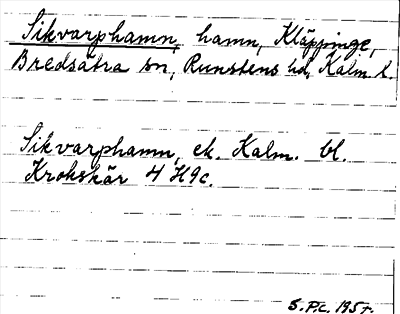 Sikvarphamn, hamn, Kläppinge,
Bredsätra sn, Runstens hd, Kalm. l.
Sikvarphamn, ek. Kalm. bl.
Krokskär 4 H9c.
S.P.c. 195